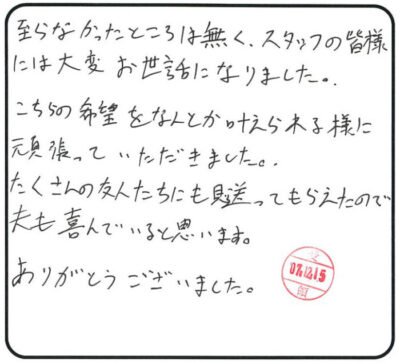 至らなかったところは無く、スタッフの皆様
には大変お世話になりました。
こちらの希望をなんとか叶えられる様に
頑張っていただきました。
たくさんの友人たちにも見送ってもらえたので
夫も喜んでいると思います。
ありがとうございました。